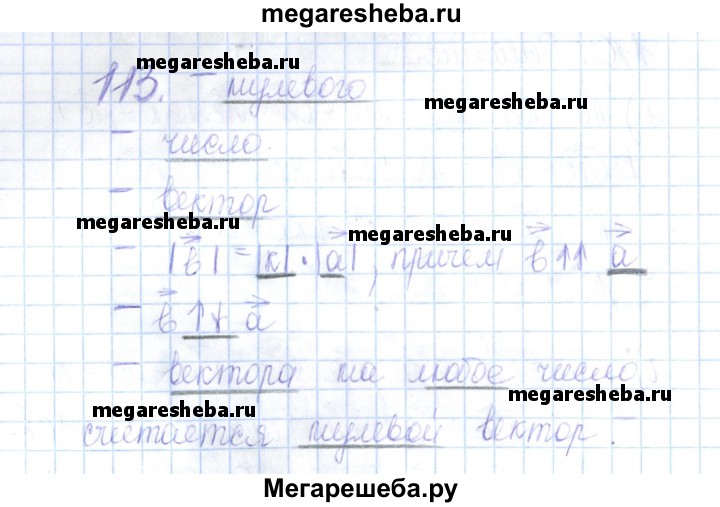 megaresheba.ru
megaresheba.ru
113. – нулевого
megaresheba.ru
– число.
– вектор
megaresheba.ru
megaresheba.ru
– |b⃗| = |k| · |a⃗|, причем b⃗ ↑↑ a⃗
– b⃗ ↑↓ a⃗
– вектора на любое число
megaresheba.ru
megaresheba.ru
считается нулевой вектор.
Мегарешеба.ру